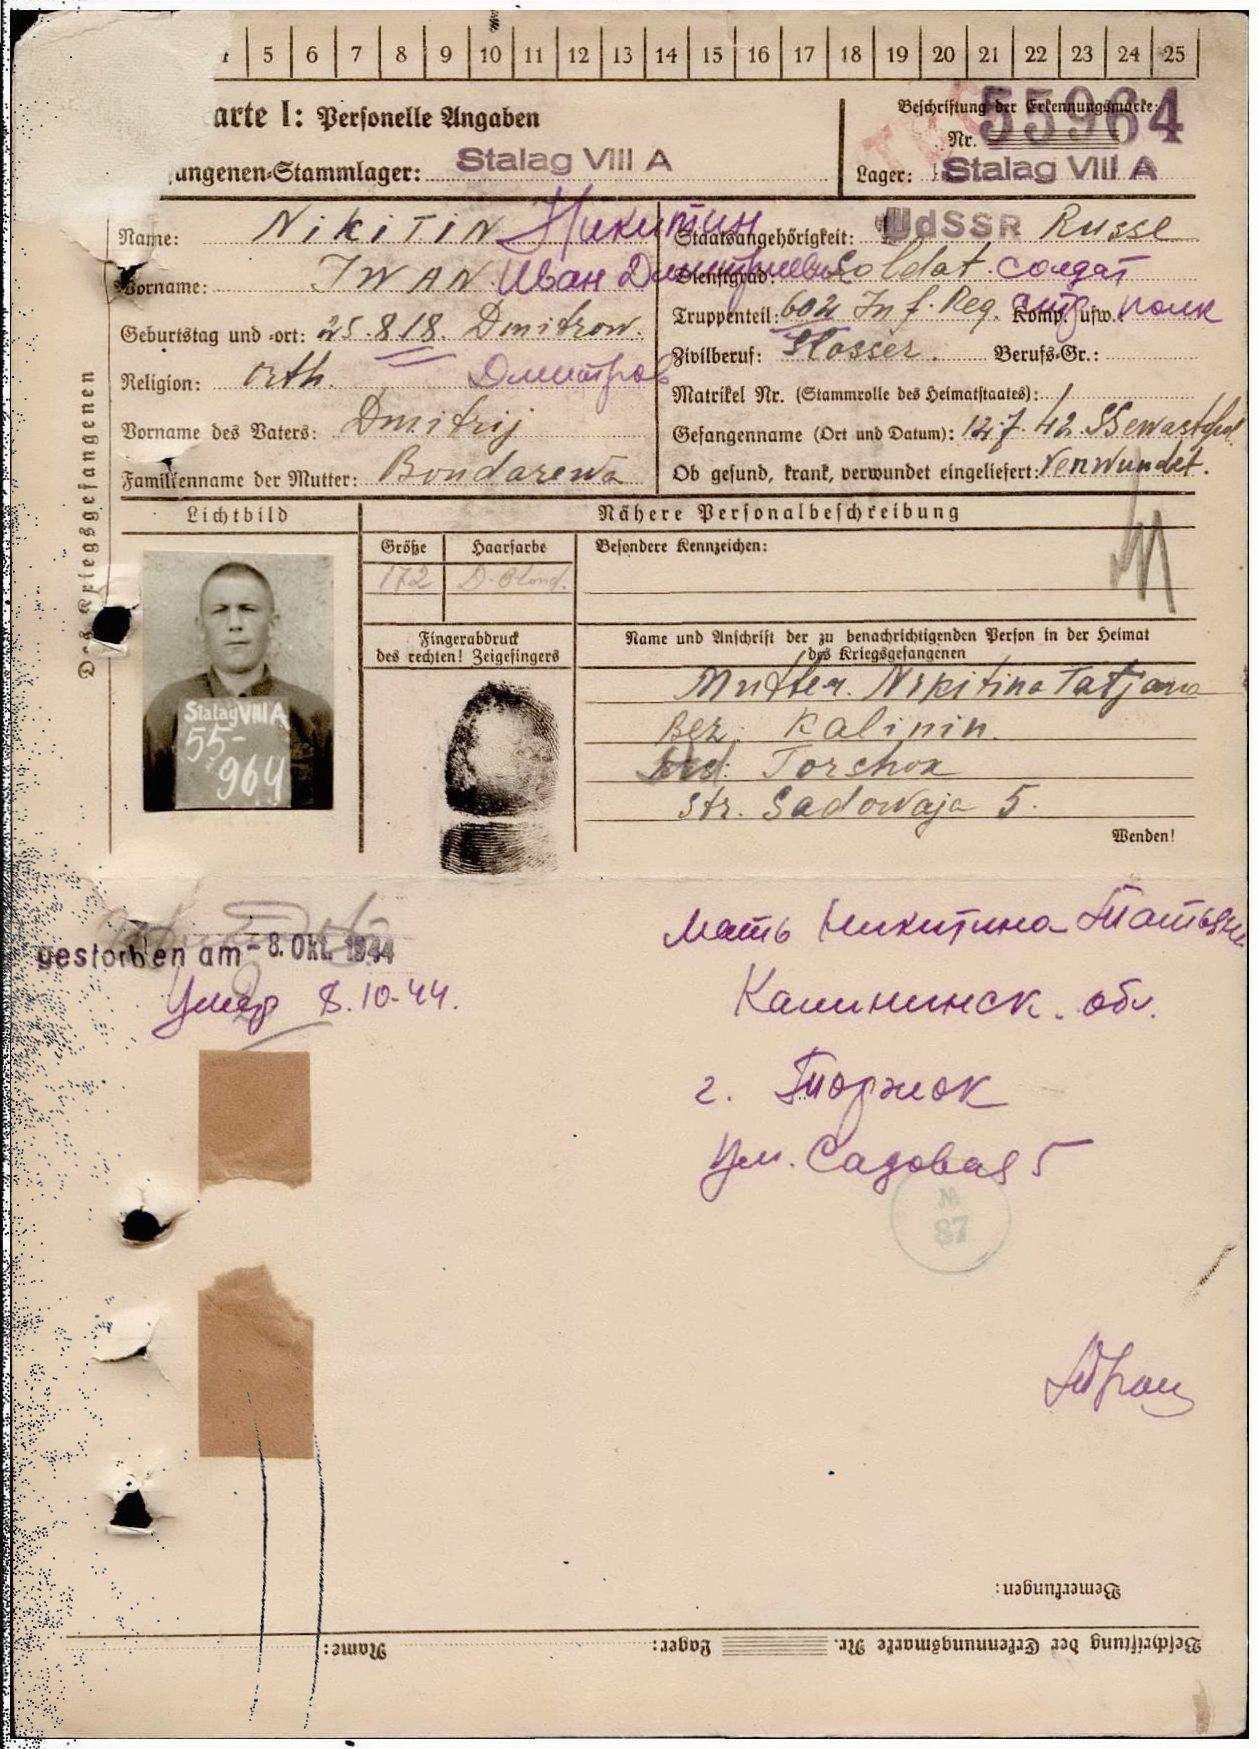 5 6 7 8 9 10 11 12 13 14 15 16 17 18 19 20 21 22 23 24 25
arte I: Personelle Angaben
Beschriftung der Erkennungsmarke:
Nr. 55964
ungenen-Stammlager: Stalag VIII A
Lager: Stalag VIII A
Name: NIKITIN Никитин
Staatsangehörigkeit: UdSSR Russe
Vorname: IWAN Иван Дмитриевич
Dienstgrad: Soldat. солдат
Geburtstag und -ort: 25.8.18. Dmitrow.
Truppenteil: 602 Inf. Reg. Komp. usw.: полк
Zivilberuf: Berufs-Gr.:
Religion: orth. Дмитров
Matrikel Nr. (Stammrolle des Heimatstaates):
Vorname des Vaters: Dmitrij
Gefangenname (Ort und Datum): 12.7.42.
Familienname der Mutter: Bondarewa
Ob gesund, krank, verwundet eingeliefert: Verwundet.
Des Kriegsgefangenen
Lichtbild
Nähere Personalbeschreibung
Größe Haarfarbe
Besondere Kennzeichen:
172 D-Blond.
Fingerabdruck
des rechten! Zeigefingers
Name und Anschrift der zu benachrichtigenden Person in der Heimat
des Kriegsgefangenen
Stalag VIII A
55-
964
Mutter. Nikitina Tatjana
Bez. Kalinin.
Torschok
Str. Sadowaja 5.
Wenden!
gestorben am - 8. Okt. 1944
Умер 8.10-44.
Мать Никитина Татьяна
Калининск. обл.
г. Торжок
Ул. Садовая 5
№
87
Bemerkungen:
Beschriftung der Erkennungsmarke Nr. Lager: Name: